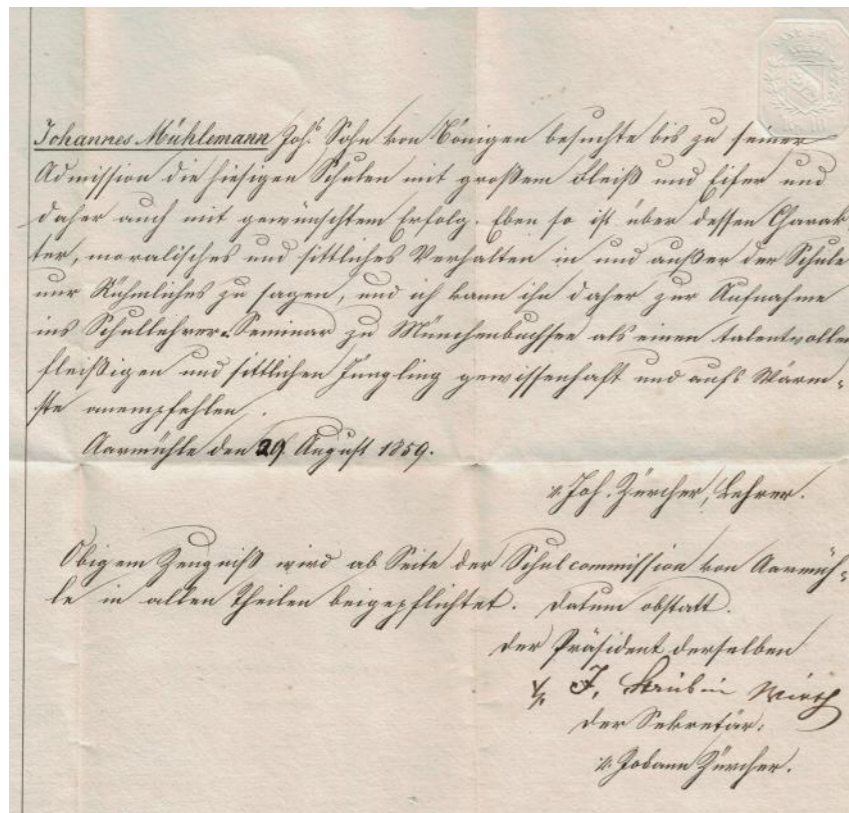 Johannes Mühlemann Joh.s Sohn von Bönigen besuchte bis zu seiner
Admission die hiesigen Schulen mit großem Fleiß und Eifer und
daher auch mit gewünschtem Erfolg. Eben so ist über dessen Charak-
ter, moralisches und sittliches Verhalten in und außer der Schule
nur Rühmliches zu sagen, und ich kann ihn daher zur Aufnahme
ins Schullehrer-Seminar zu Münchenbuchsee als einen talentvollen
fleißigen und sittlichen Jüngling gewissenhaft und aufs Wärm-
ste anempfehlen.
Aarmühle den 29 August 1859.
Joh. Zürcher, Lehrer.
Obigem Zeugniß wird ab Seite der Schulcommission von Aarmüh-
le in allen Theilen beigepflichtet. Datum obstatt.
Der Präsident derselben
J. Wirth
Der Sekretär:
Johann Zürcher.